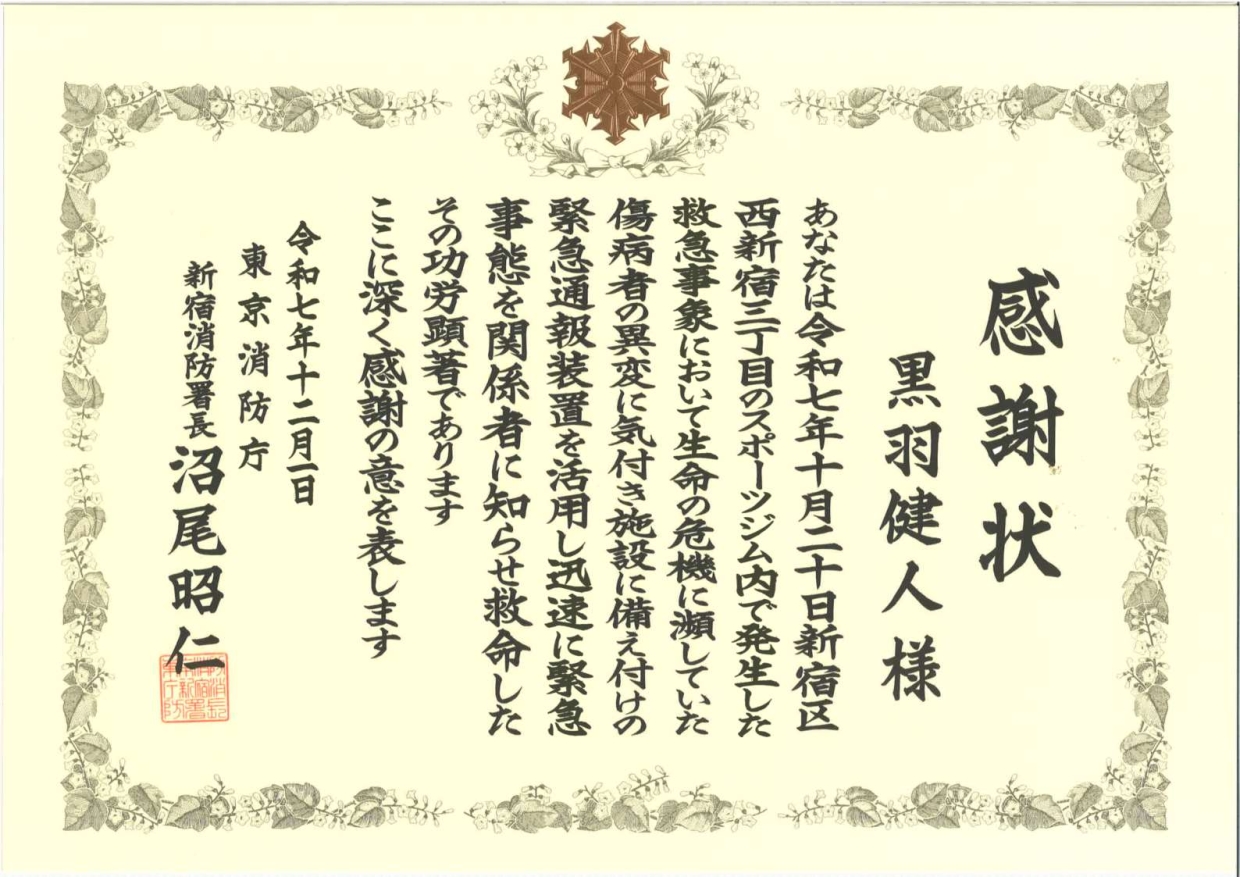 感謝状
黒羽健人様
あなたは令和七年十月二十日新宿区
西新宿三丁目のスポーツジム内で発生した
救急事象において生命の危機に瀕していた
傷病者の異変に気付き施設に備え付けの
緊急通報装置を活用し迅速に緊急
事態を関係者に知らせ救命した
その功労顕著であります
ここに深く感謝の意を表します
令和七年十二月一日
東京消防庁
新宿消防署長 沼尾昭仁